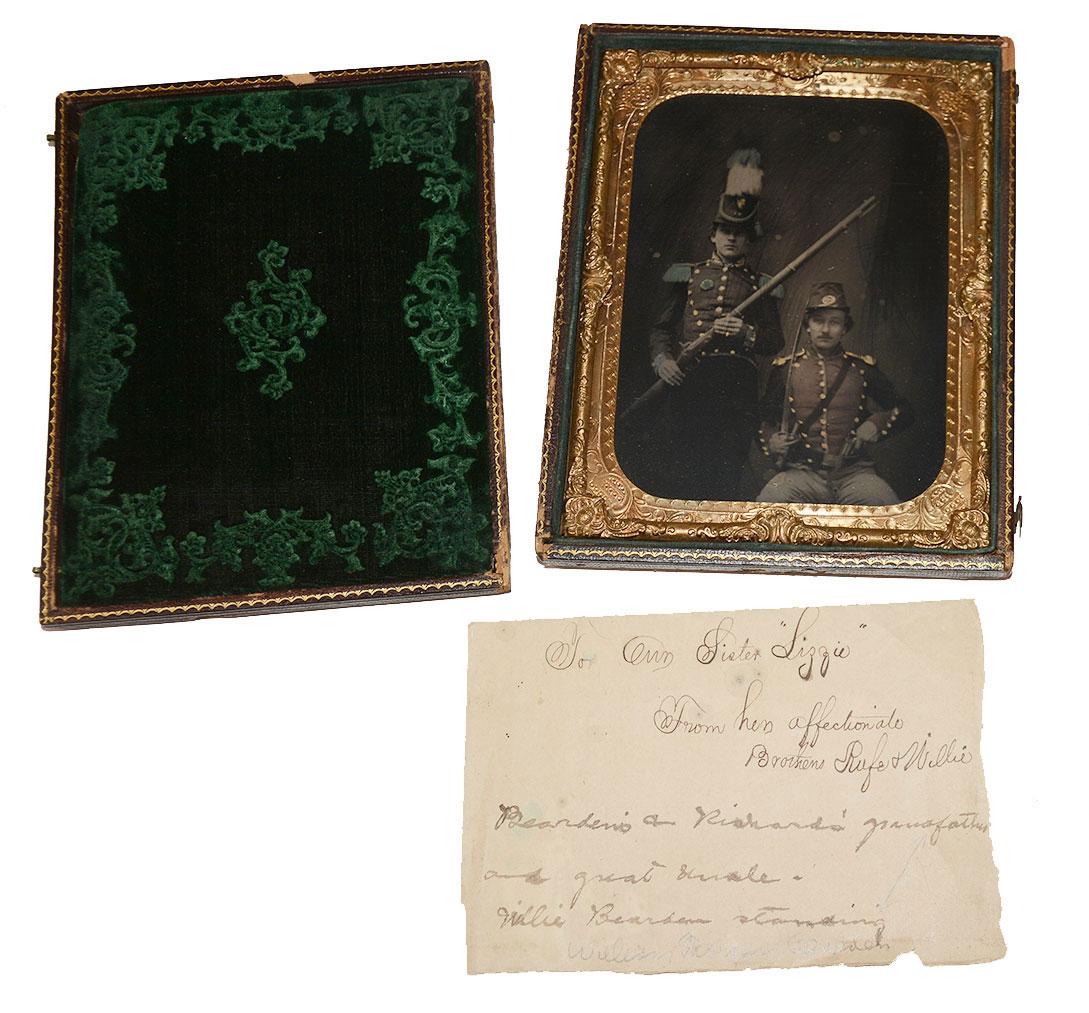 To Our Sister "Lizzie"
From her affectionate
Brothers Rufe & Willie
Bearden's & Richards' grandfather
and great Uncle.
Willie Bearden standing
Bearden